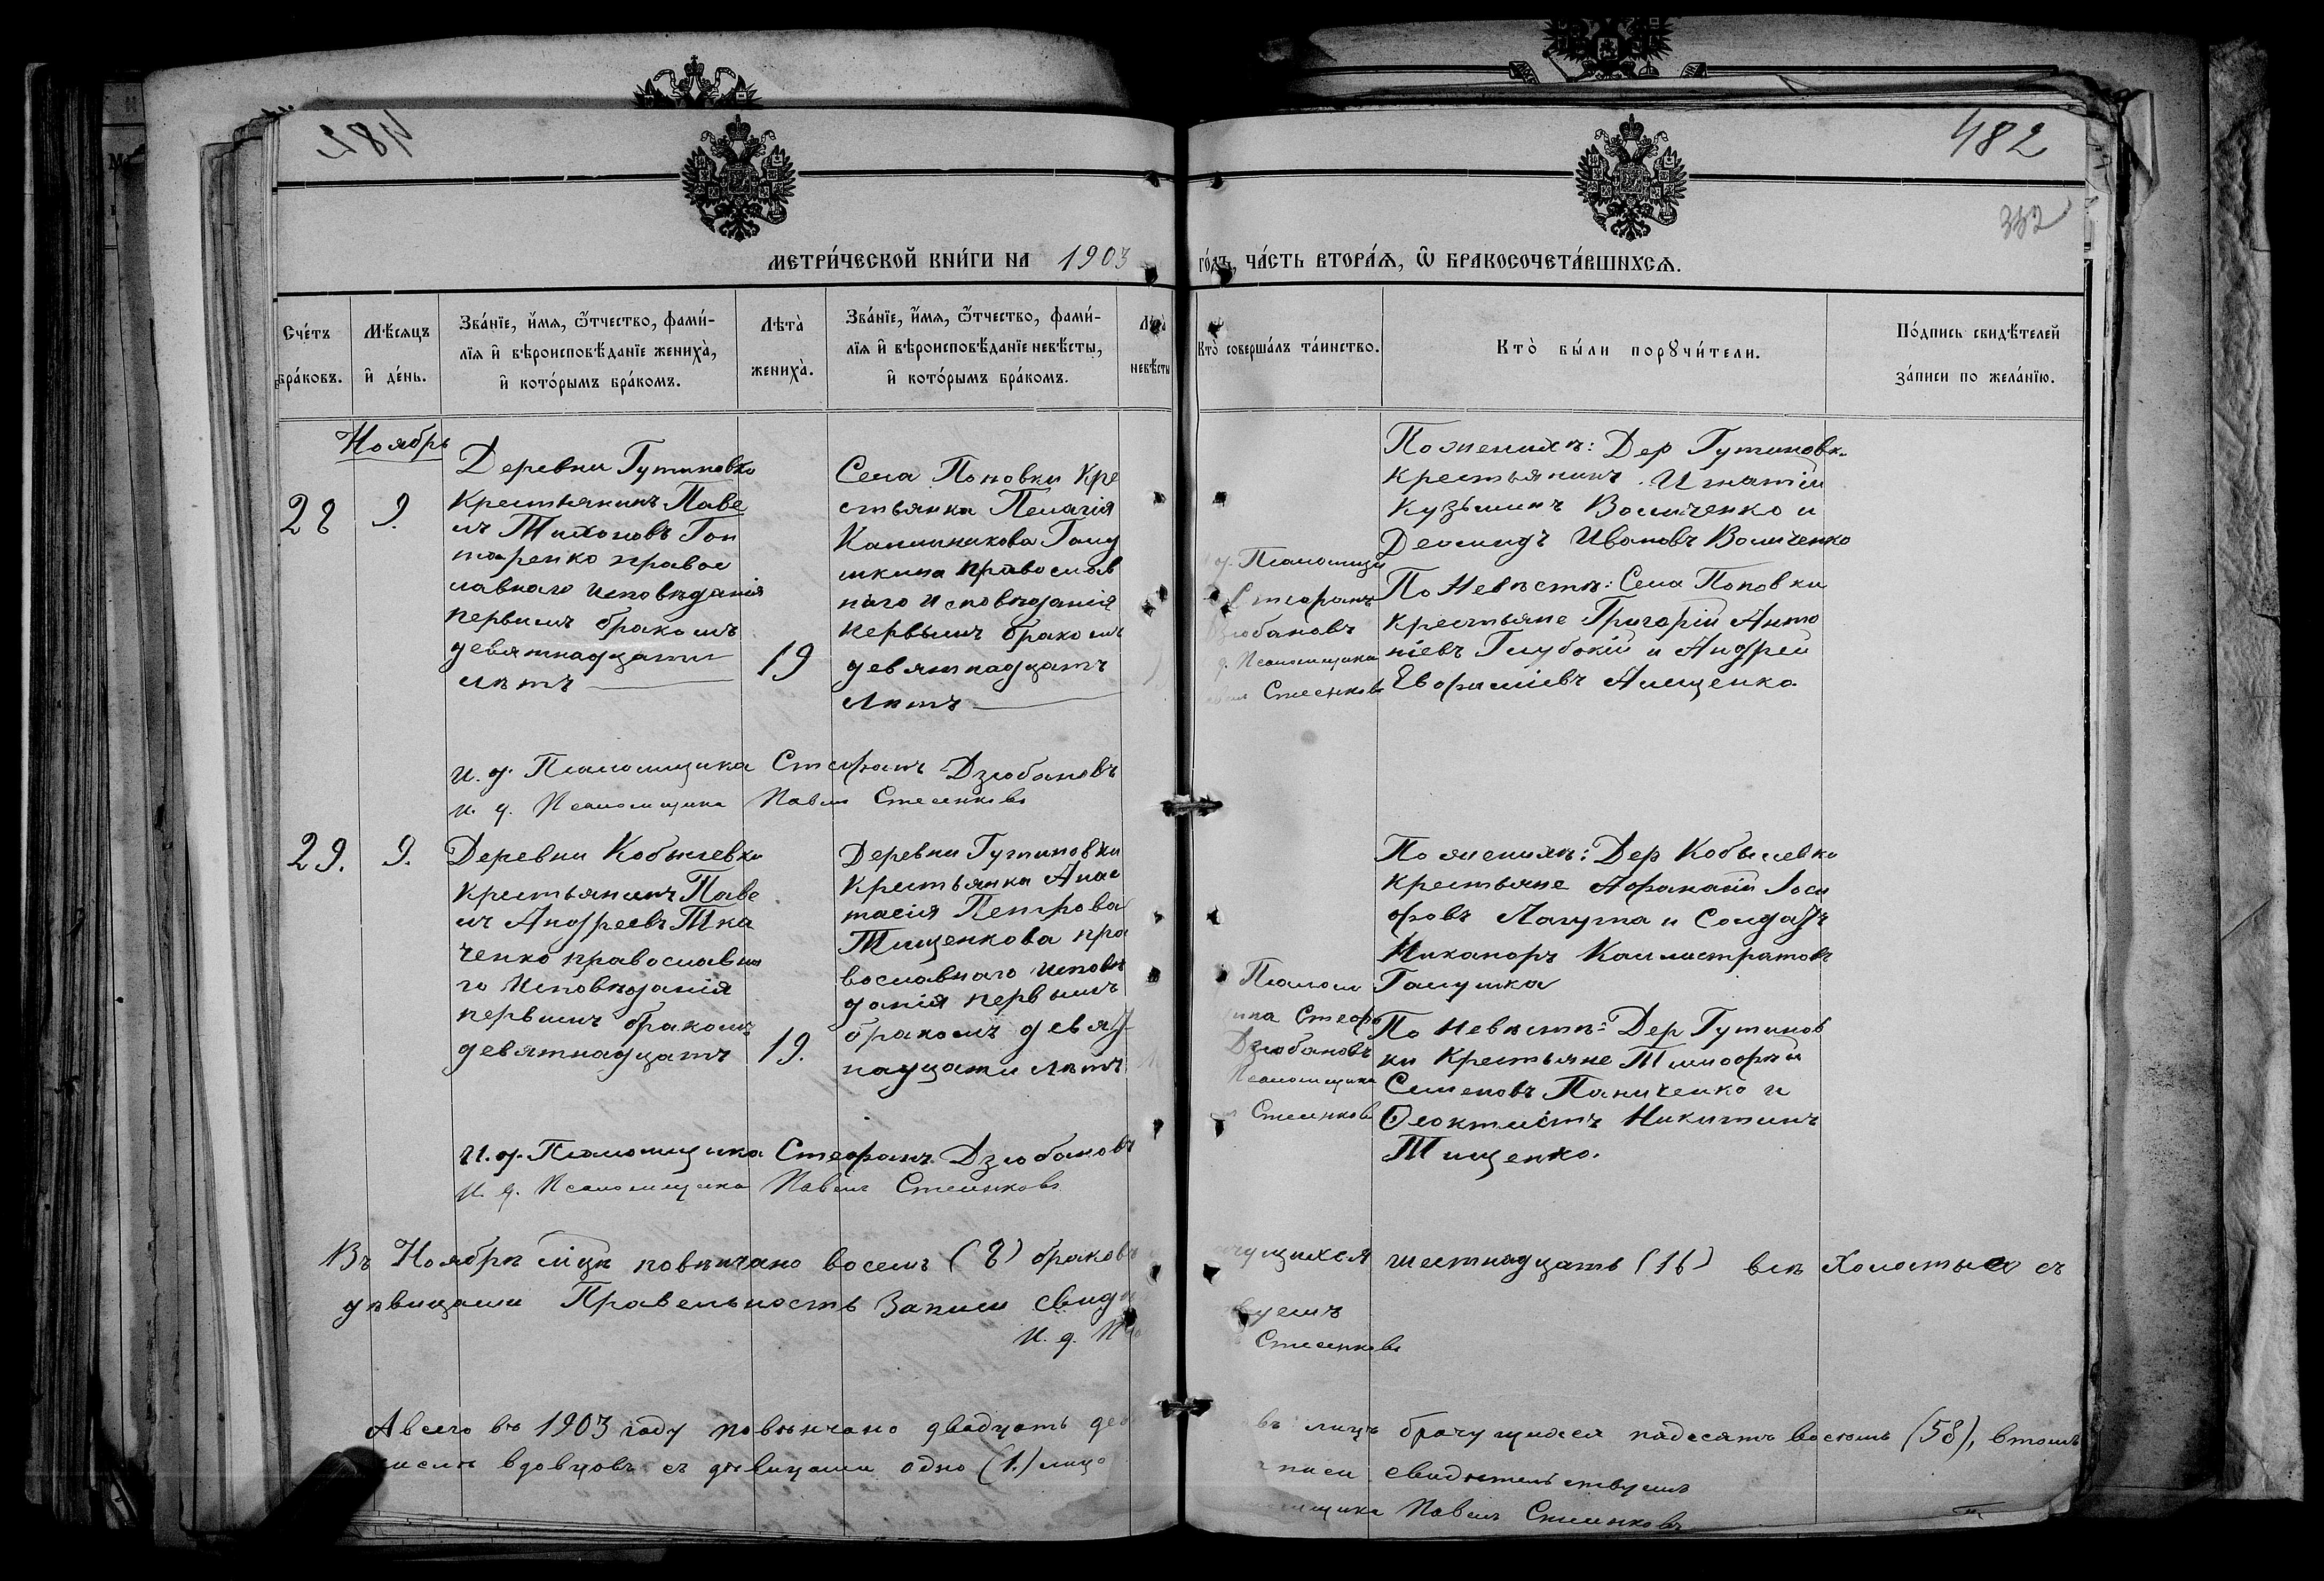 482
482
332
МЕТРИ́ЧЕСКОЙ КНИ́ГИ НА 1903 ГО́ДЪ, ЧА́СТЬ ВТОРА́Ѧ, Ѡ БРАКОСОЧЕТА́ВШИХСѦ.
Сче́тъ бра́ковъ.
Мѣ́сяцъ и҆ де́нь.
Зва́нїе, и҆́мѧ, ѻ҆́тчество, фами́-
лїѧ и҆ вѣроисповѣ́данїе жениха̀,
и҆ кото́рымъ бра́комъ.
Лѣта̀ жениха̀.
Зва́нїе, и҆́мѧ, ѻ҆́тчество, фами́-
лїѧ и҆ вѣроисповѣ́данїе невѣ́сты,
и҆ кото́рымъ бра́комъ.
Лѣта̀ невѣ́сты
Кто̀ соверша́лъ та́инство.
Кто̀ бы́ли порꙋчи́тели.
По́дпись свидѣ́телей
за́писи по жела́нїю.
Ноябрь
28
9.
Деревни Гутиновки
Крестьянинъ Паве
лъ Тихоновъ Гон
таренко правос
лавнаго исповѣданія
первымъ бракомъ
девятнадцати
лѣтъ
19
Села Поповки Кре
стьянка Пелагія
Калинникова Галу
шкина православ
наго исповѣданія
первымъ бракомъ
девятнадцать
лѣтъ
Псаломщи
Стефанъ
Дзюбановъ
Псаломщика
Стеенковъ
По женихѣ: Дер Гутиновк.
крестьянинъ Игнатій
Кузьминъ Воличенко и
Деомидъ Ивановъ Воличенко
По Невѣстѣ: Села Поповки
крестьяне Григорій Анто
ніевъ Глубокій и Андрей
Евфиміевъ Алещенко
и. д. Псаломщика Стефанъ Дзюбановъ
и. д. Псаломщика Павелъ Стеенковъ
29.
9.
Деревни Кобылевки
Крестьянинъ Паве
лъ Андреевъ Тка
ченко православна
го Исповѣданія
первымъ бракомъ
девятнадцать
19.
Деревни Гутиновки
Крестьянка Анас
тасія Петрова
Тищенкова пра
вославнаго исповѣ
данія первымъ
бракомъ девят
надцати лѣтъ
Псалом
щика Стефа
Дзюбановъ
Псаломщика
Стеенковъ
По женихѣ: Дер Кобылевки
крестьяне Афанасій Іоси
фовъ Лагута и Солдатъ
Никаноръ Каллистратовъ
Галушка
По Невѣстѣ: Дер Гутинов
ки Крестьяне Тимофѣй
Семеновъ Паниченко и
Ѳеоктистъ Никитинъ
Тищенко.
И. д. Псаломщика Стефанъ Дзюбановъ
И. д. Псаломщика Павелъ Стеенковъ
Въ Ноябрѣ м҃цѣ повѣнчано восемь (8) браковъ
чущихся шестнадцать (16) всѣ холостые съ
дѣвицами Правельность Записи Свидѣ
твуемъ
И. д. Пса
Стеенковъ
А всего въ 1903 году повѣнчано двадцать дев
въ лицъ брачущихся пядесятъ восемь (58), втомъ
числѣ вдовцовъ съ дѣвицами одно (1.) лицо
писи свидѣтельствуемъ
мщика Павелъ Стеенковъ